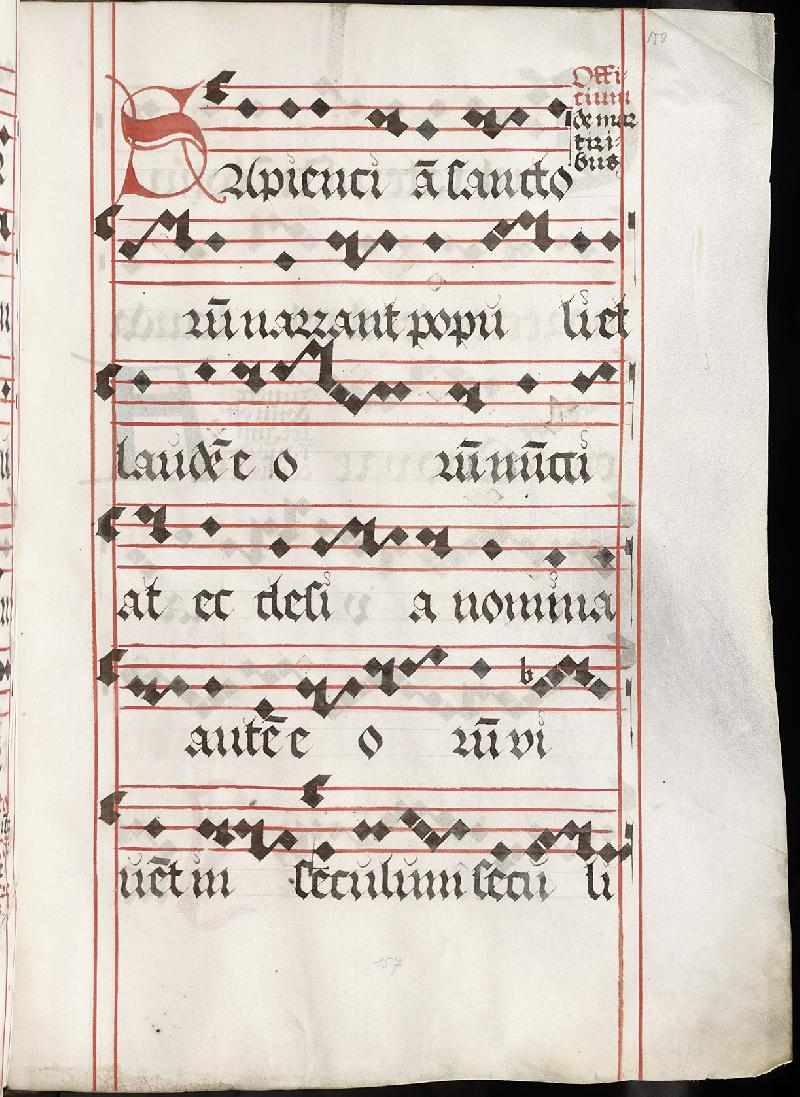 158
Offi
cium
de mar
tiri
bus
Sapienci ā sancto
rū narrant popu li et
e o rū nūcci
at ec clesi a nomina
autē e o rū vi
uēt in seculum secu li
157